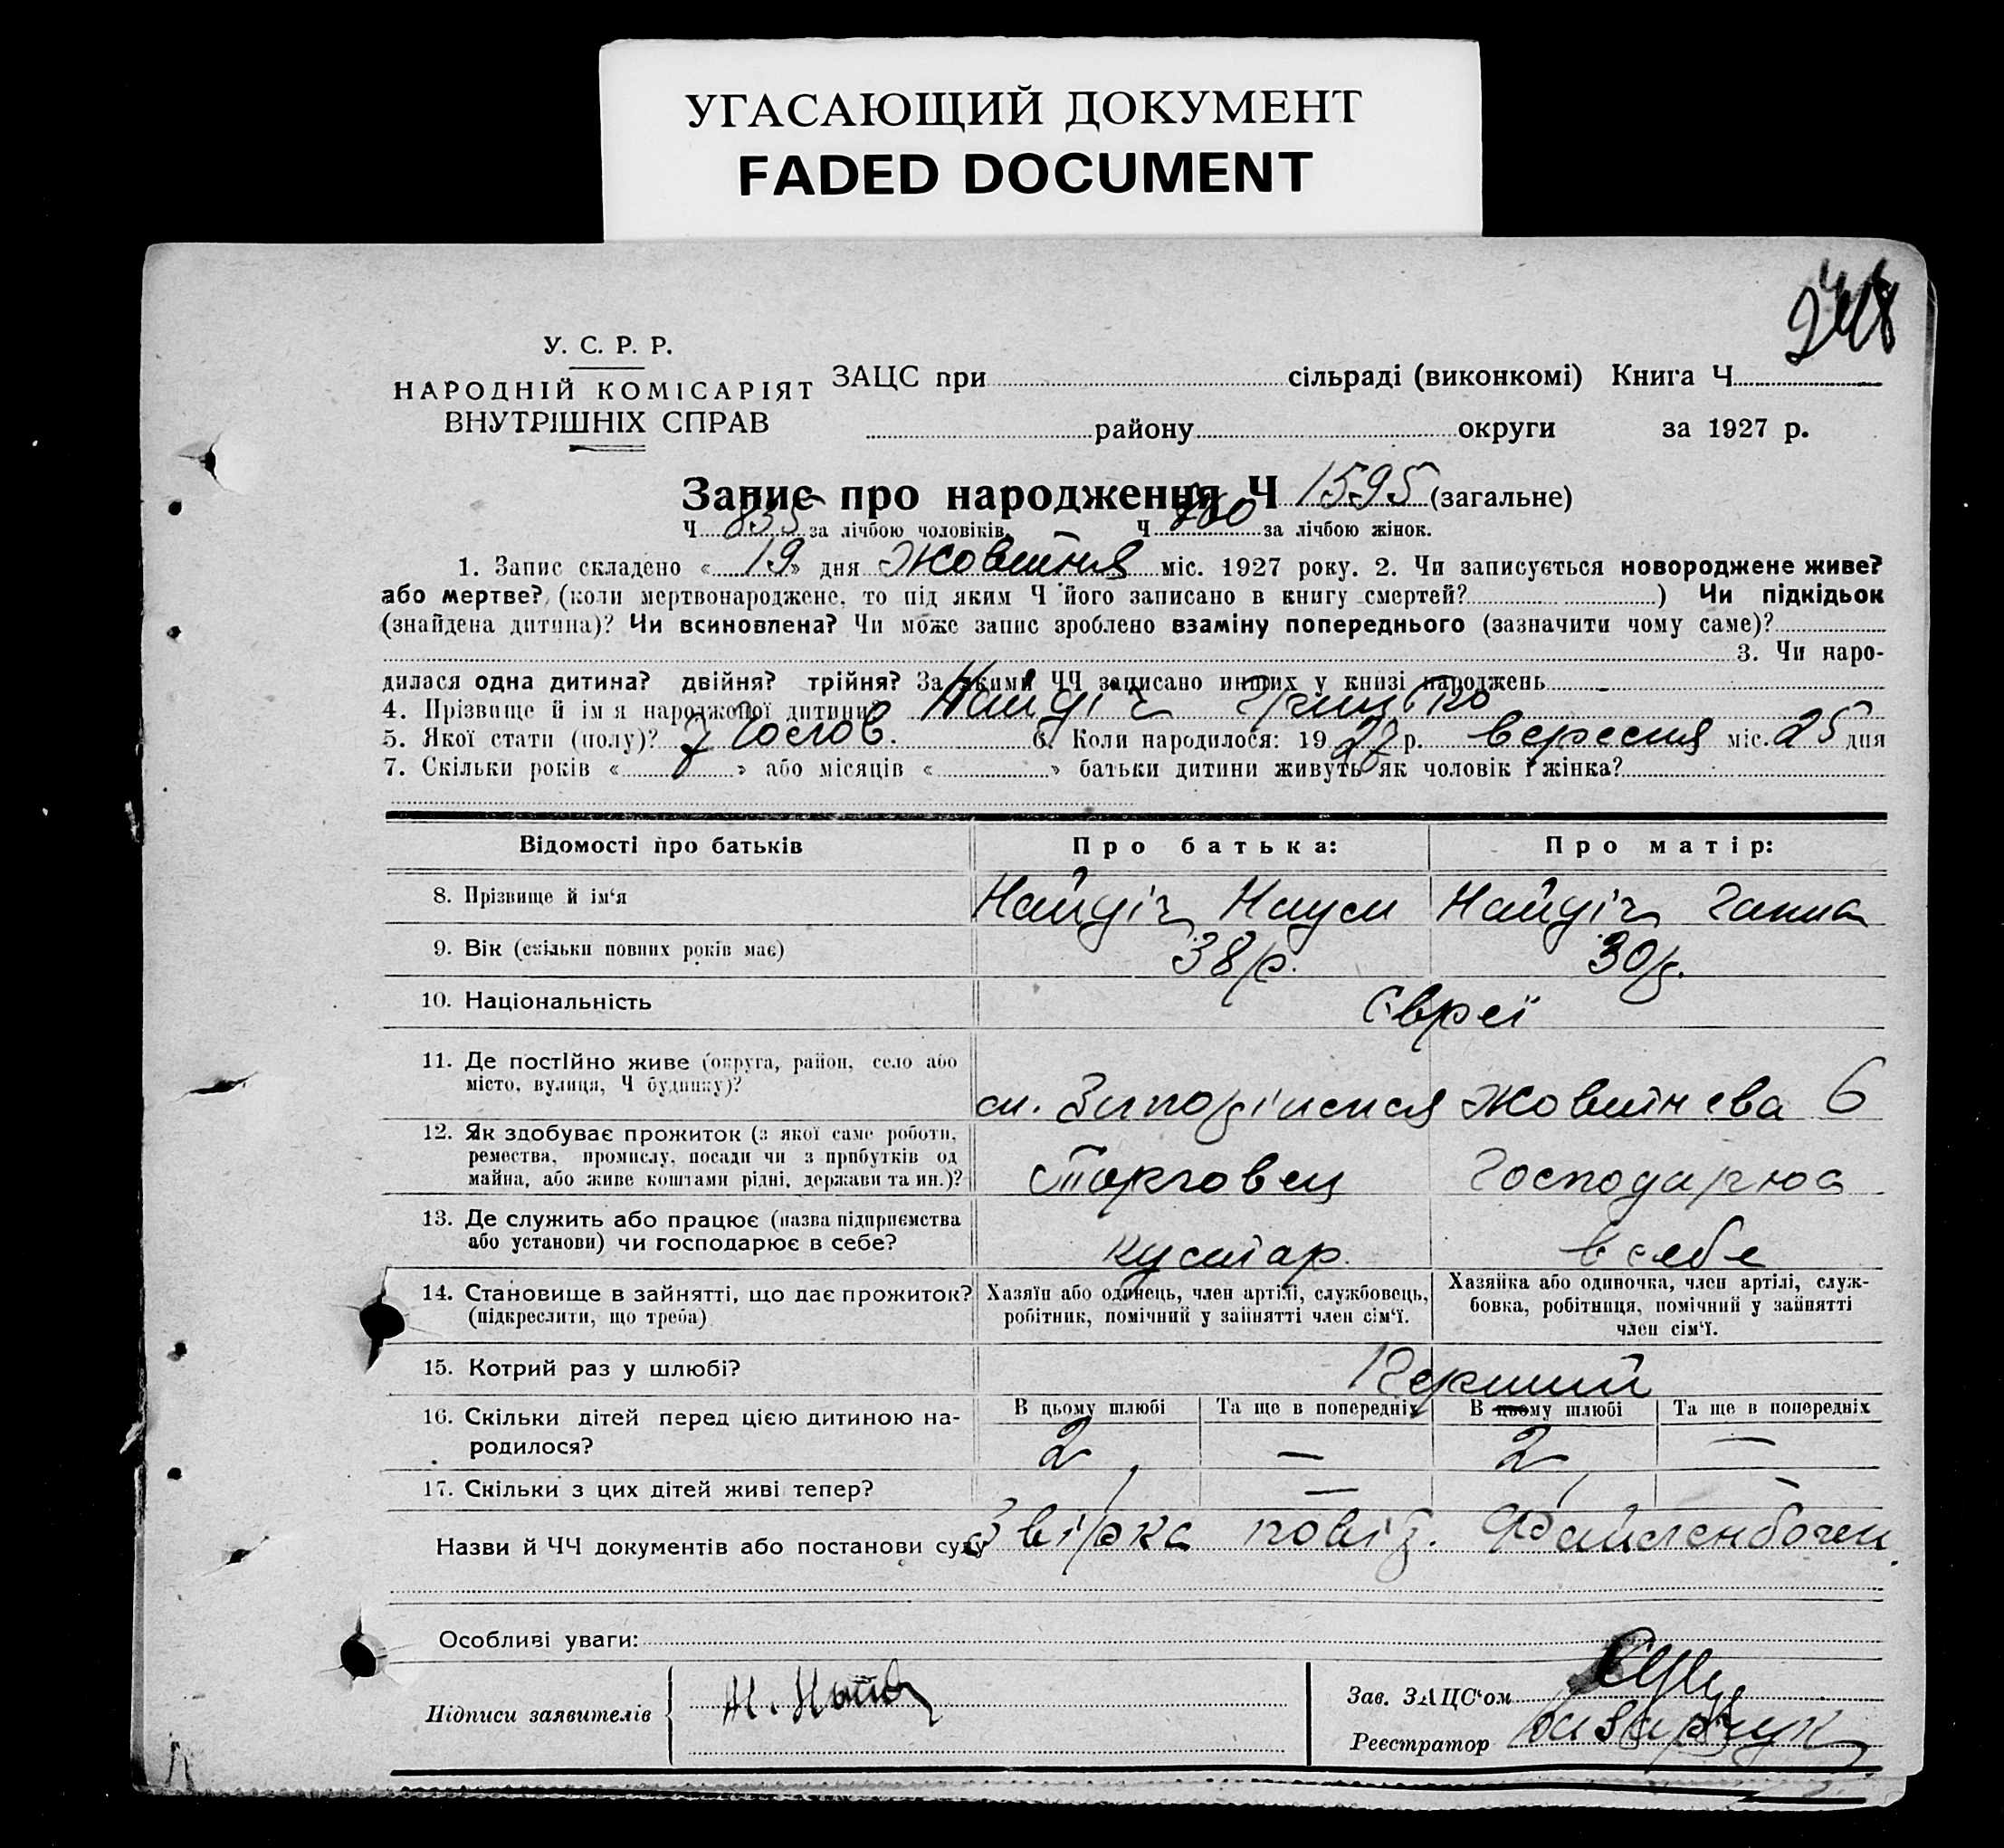 УГАСАЮЩИЙ ДОКУМЕНТ
FADED DOCUMENT
У. С. Р. Р.
НАРОДНІЙ КОМІСАРІЯТ
ВНУТРІШНІХ СПРАВ
ЗАЦС при сільраді (виконкомі) Книга Ч
району округи за 1927 р.
Запис про народження Ч 1595 (загальне)
Ч 835 за лічбою чоловіків. Ч 760 за лічбою жінок.
1. Запис складено « 19 » дня Жовтня міс. 1927 року. 2. Чи записується новороджене живе?
або мертве? (коли мертвонароджене, то під яким Ч його записано в книгу смертей? ) Чи підкідьок
(знайдена дитина)? Чи всиновлена? Чи може запис зроблено взаміну попереднього (зазначити чому саме)?
3. Чи наро-
дилася одна дитина? двійня? трійня? За якими ЧЧ записано инших у книзі народжень
4. Прізвище й ім'я народженої дитини Найдіч Грицько
5. Якої стати (полу)? Чолов. 6. Коли народилося: 1927 р. вересня міс. 25 дня
7. Скільки років « » або місяців « » батьки дитини живуть як чоловік і жінка?
Відомості про батьків Про батька: Про матір:
8. Прізвище й ім'я Найдіч Наум Найдіч Ганна
9. Вік (скільки повних років має) 38 р. 30 р.
10. Національність Євреї
11. Де постійно живе (округа, район, село або
місто, вулиця, Ч будинку)?
м. Жовтнева 6
12. Як здобуває прожиток (з якої саме роботи,
ремества, промислу, посади чи з прибутків од
майна, або живе коштами рідні, держави та ин.)?
Торговец Господарює
13. Де служить або працює (назва підприємства
або установи) чи господарює в себе?
кустар. в себе
14. Становище в зайнятті, що дає прожиток?
(підкреслити, що треба)
Хазяїн або одинець, член артілі, службовець,
робітник, помічний у зайнятті член сім'ї.
Хазяйка або одиночка, член артілі, служ-
бовка, робітниця, помічний у зайнятті
член сім'ї.
15. Котрий раз у шлюбі? Перший
16. Скільки дітей перед цією дитиною на-
родилося?
В цьому шлюбі Та ще в попередніх В цьому шлюбі Та ще в попередніх
2 — 2 —
17. Скільки з цих дітей живі тепер? 1 — 1 —
Назви й ЧЧ документів або постанови суду
Особливі уваги:
Підписи заявителів
Зав. ЗАЦС'ом
Реєстратор